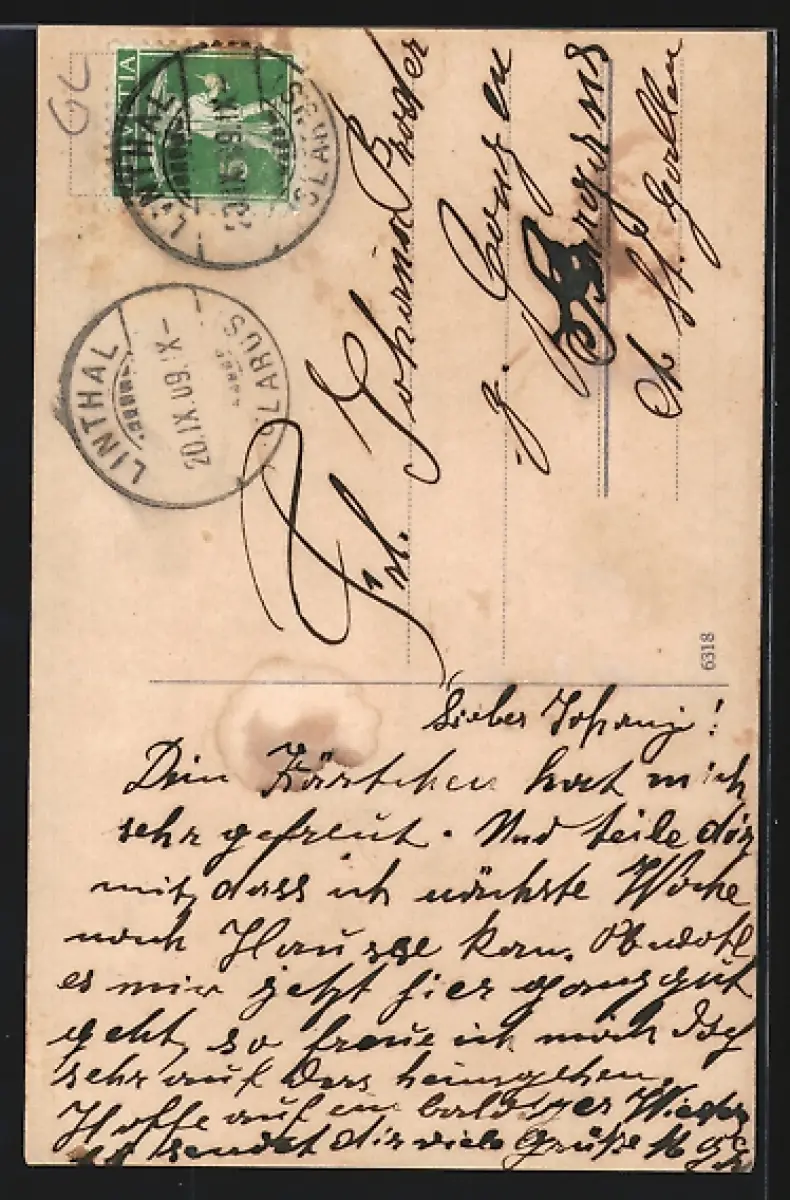 HELVETIA
LINTHAL
GLARUS
20.IX.09.IX-
LINTHAL
GLARUS
20.IX.09.IX-
Frl. Johanna Broder
z. Gonzen
Sargans
Ct St. Gallen
6318
Liebes Johanni!
Dein Kärtchen hat mich
sehr gefreut. Und teile dir
mit, dass ich nächste Woche
nach Hause kan. Obwohl
es mir jetzt hier ganz gut
geht, so freue ich mich doch
sehr auf das heimgehen.
Hoffe auf ein baldiges Wieder
sendet dir viele Grüße